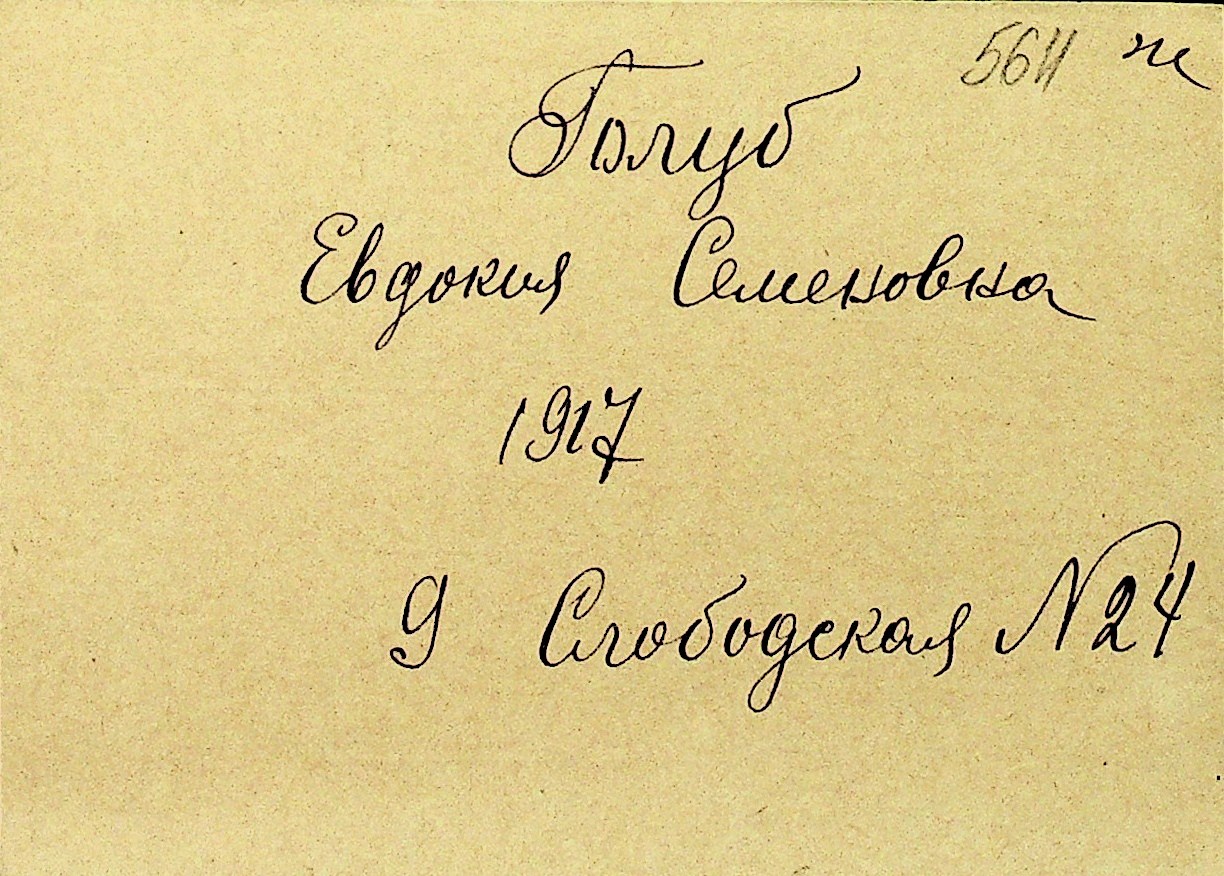 5611 ж
Голуб
Евдокия Семеновна
1917
9 Слободская №24